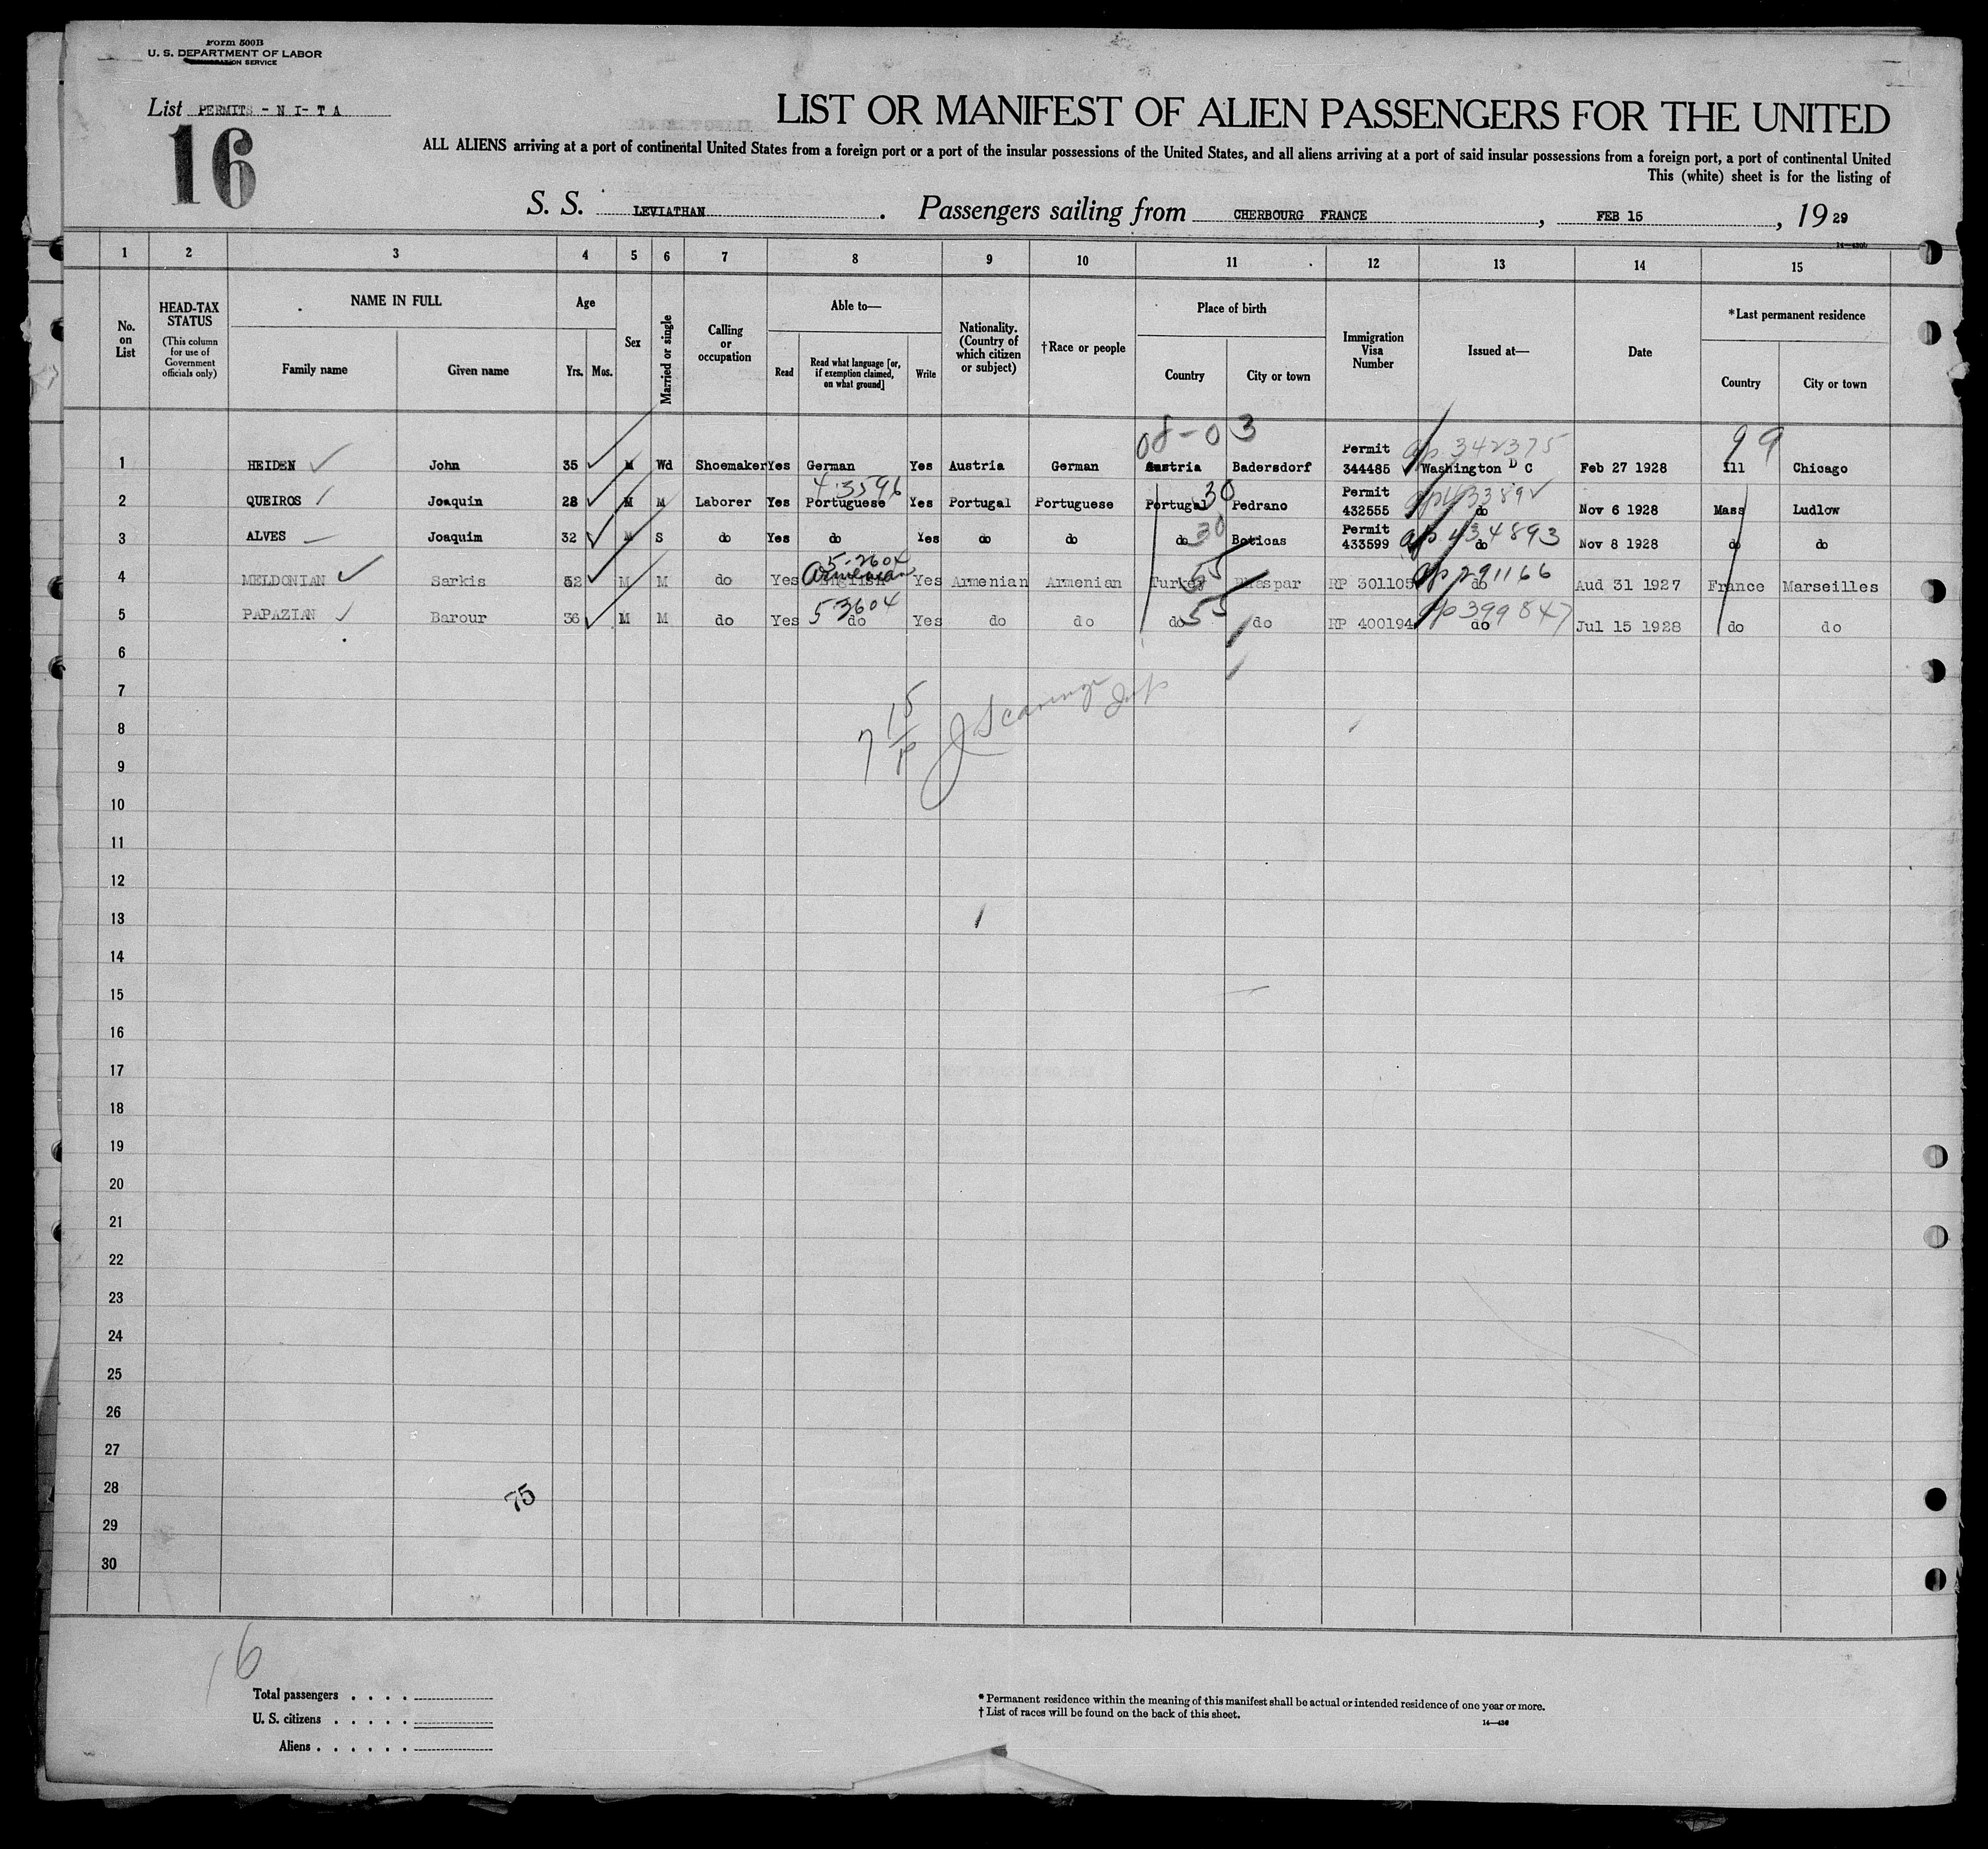 Form 500B
U. S. DEPARTMENT OF LABOR
IMMIGRATION SERVICE
List PERMITS - N I - T A
16
LIST OR MANIFEST OF ALIEN PASSENGERS FOR THE UNITED
ALL ALIENS arriving at a port of continental United States from a foreign port or a port of the insular possessions of the United States, and all aliens arriving at a port of said insular possessions from a foreign port, a port of continental United
This (white) sheet is for the listing of
S. S. LEVIATHAN . Passengers sailing from CHERBOURG FRANCE , FEB 15 , 19 29
14—430b
1 2 3 4 5 6 7 8 9 10 11 12 13 14 15
No. on List
HEAD-TAX STATUS
(This column for use of Government officials only)
NAME IN FULL
Family name Given name
Age
Yrs. Mos.
Sex
Married or single
Calling or occupation
Able to—
Read
Read what language [or, if exemption claimed, on what ground]
Write
Nationality. (Country of which citizen or subject)
†Race or people
Place of birth
Country City or town
Immigration Visa Number
Issued at—
Date
*Last permanent residence
Country City or town
08-03 99
Permit ap 342375
1 HEIDEN John 35 M Wd Shoemaker Yes German Yes Austria German Austria Badersdorf 344485 Washington D C Feb 27 1928 Ill Chicago
4-3596 30 Permit
2 QUEIROS Joaquin 28 M M Laborer Yes Portuguese Yes Portugal Portuguese Portugal Pedrano 432555 do Nov 6 1928 Mass Ludlow
30 Permit ap 434893
3 ALVES Joaquim 32 M S do Yes do Yes do do do Boticas 433599 do Nov 8 1928 do do
5-2604 Armenian 55 ap 291166
4 MELDONIAN Sarkis 52 M M do Yes English Yes Armenian Armenian Turkey RP 301105 do Aud 31 1927 France Marseilles
5-3604 55 ap 399847
5 PAPAZIAN Barour 36 M M do Yes do Yes do do do do RP 400194 do Jul 15 1928 do do
6
7
8
9
10
11
12
13
14
15
16
17
18
19
20
21
22
23
24
25
26
27
28
75
29
30
16
Total passengers . . . .
U. S. citizens . . . . .
Aliens . . . . . .
* Permanent residence within the meaning of this manifest shall be actual or intended residence of one year or more.
† List of races will be found on the back of this sheet.
14—430